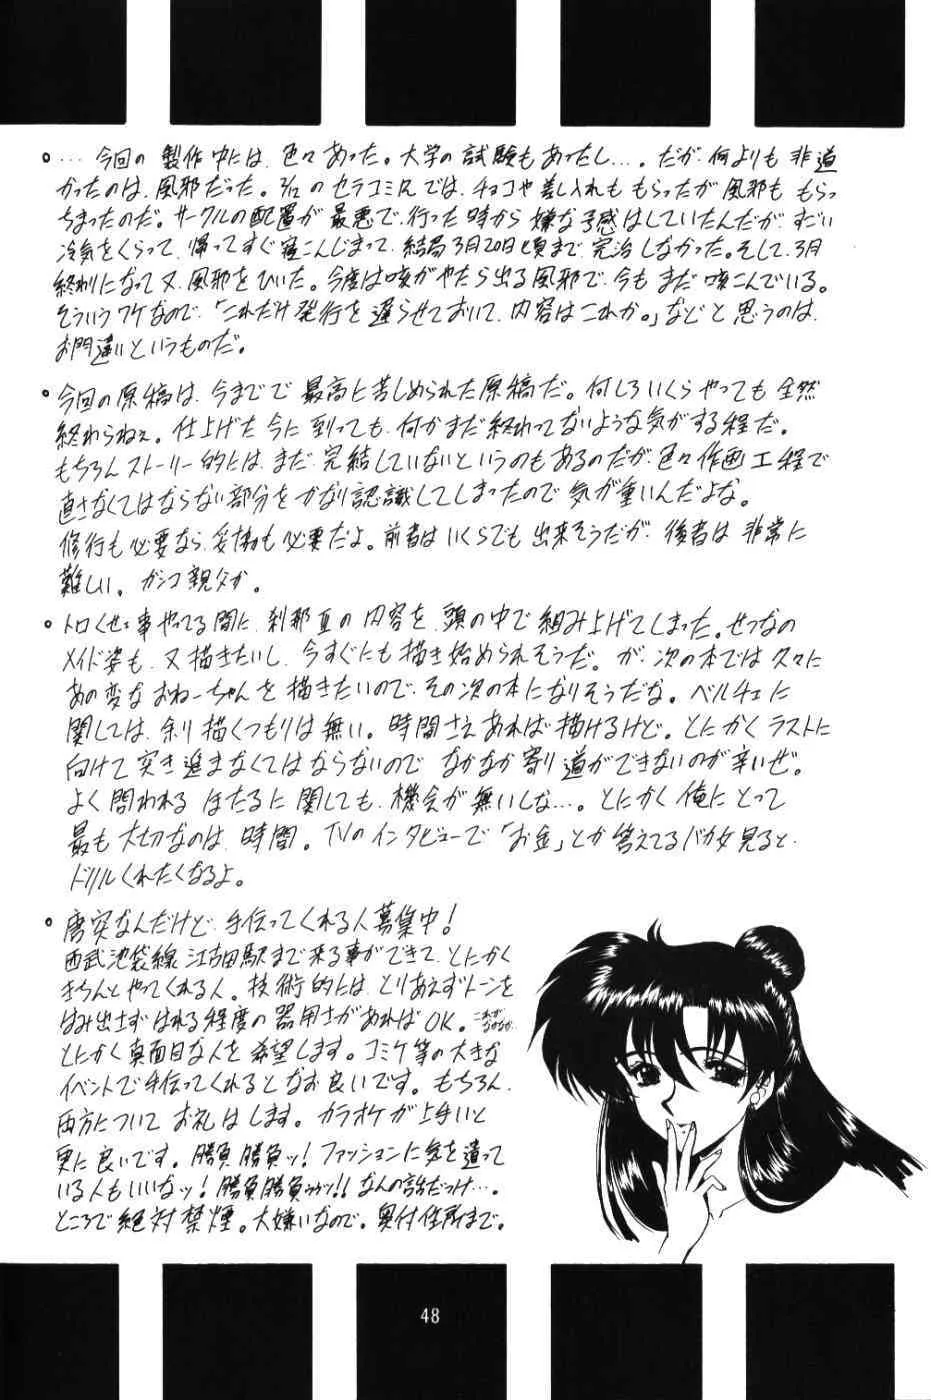 。… 今回の製作中には、色々あった。大学の試験もあったし…。だが、何よりも非道
かったのは、風邪だった。3/12のセラコミRでは、チョコや差し入れももらったが風邪ももらっ
ちまったのだ。サークルの配置が最悪で、行った時から嫌な予感はしていたんだが、すごい
冷気をくらって、帰ってすぐ寝こんじまって、結局3月20日頃まで完治しなかった。そして、3月
終わりになって又、風邪をひいた。今度は咳がやたら出る風邪で、今もまだ咳こんでいる。
そういうワケなので、「これだけ発行を遅らせておいて、内容はこれか。」などと思うのは、
お門違いというものだ。
。今回の原稿は、今までで最高に苦しめられた原稿だ。何しろいくらやっても全然
終わらねぇ。仕上げた今に到っても、何かまだ終わってないような気がする程だ。
もちろんストーリー的には、まだ完結していないというのもあるのだが、色々作画工程で
直さなくてはならない部分をかなり認識してしまったので気が重いんだよな。
修行も必要なら、妥協も必要だよ。前者はいくらでも出来そうだが、後者は非常に
難しい。ガンコ親父か。
。トロくせェ事やってる間に、刹那Ⅱの内容を、頭の中で組み上げてしまった。せつなの
メイド姿も、又描きたいし、今すぐにも描き始められそうだ。が、次の本では久々に
あの変なおねーちゃんを描きたいので、その次の本になりそうだな。ベルチェに
関しては、余り描くつもりは無い。時間さえあれば描けるけど。とにかくラストに
向けて突き進まなくてはならないので、なかなか寄り道ができないのが辛いぜ。
よく問われるほたるに関しても、機会が無いしな…。とにかく俺にとって
最も大切なのは、時間。TVのインタビューで「お金」とか答えてるバカ女見ると、
ドリルくれたくなるよ。
。唐突なんだけど、手伝ってくれる人募集中!
西武池袋線江古田駅まで来る事ができて、とにかく
きちんとやってくれる人。技術的には、とりあえずトーンを
はみ出さずはれる程度の器用さがあればOK。
とにかく真面目な人を希望します。コミケ等の大きな
イベントで手伝ってくれるとなお良いです。もちろん、
両方についてお礼はします。カラオケが上手いと
更に良いです。勝負勝負ッ!ファッションに気を遣って
いる人もいいなッ!勝負勝負ゥゥッ!!なんの話だっけ…。
ところで絶対禁煙。大嫌いなので。奥付住所まで。
48